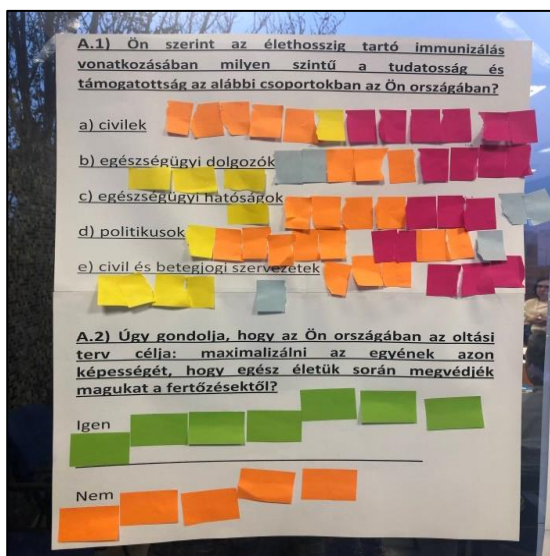 A.1) Ön szerint az élethosszig tartó immunizálás
vonatkozásában milyen szintű a tudatosság és
támogatottság az alábbi csoportokban az Ön országában?
a) civilek
b) egészségügyi dolgozók
c) egészségügyi hatóságok
d) politikusok
e) civil és betegjogi szervezetek
A.2) Úgy gondolja, hogy az Ön országában az oltási
terv célja: maximalizálni az egyének azon
képességét, hogy egész életük során megvédjék
magukat a fertőzésektől?
Igen
Nem